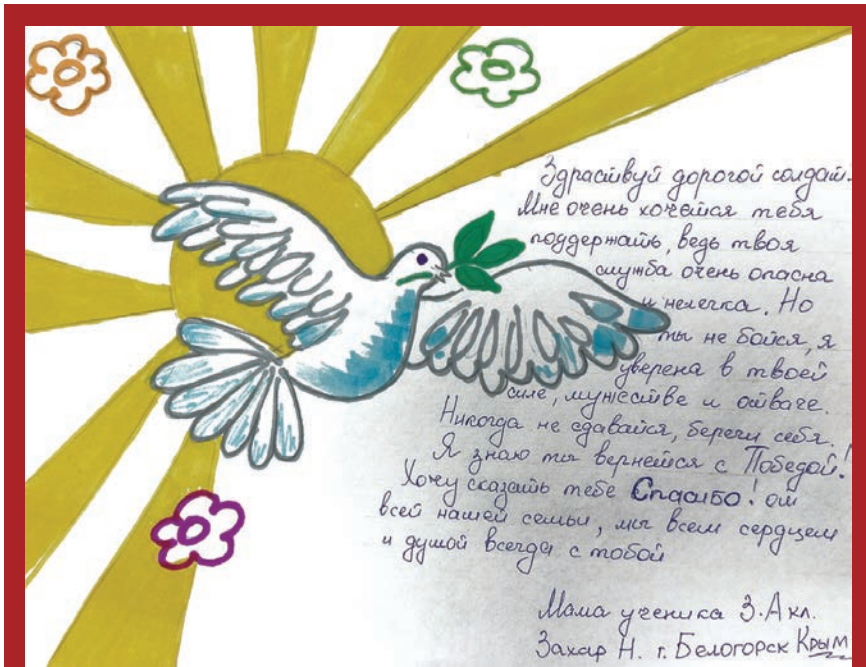 Здраствуй дорогой солдат.
Мне очень хочется тебя
поддержать, ведь твоя
служба очень опасна
и нелегка. Но
ты не бойся, я
уверена в твоей
силе, мужестве и отваге.
Никогда не сдавайся, береги себя.
Я знаю ты вернешся с Победой!
Хочу сказать тебе Спасибо! от
всей нашей семьи, мы всем сердцем
и душой всегда с тобой
Мама ученика 3-А кл.
Захар Н. г. Белогорск Крым